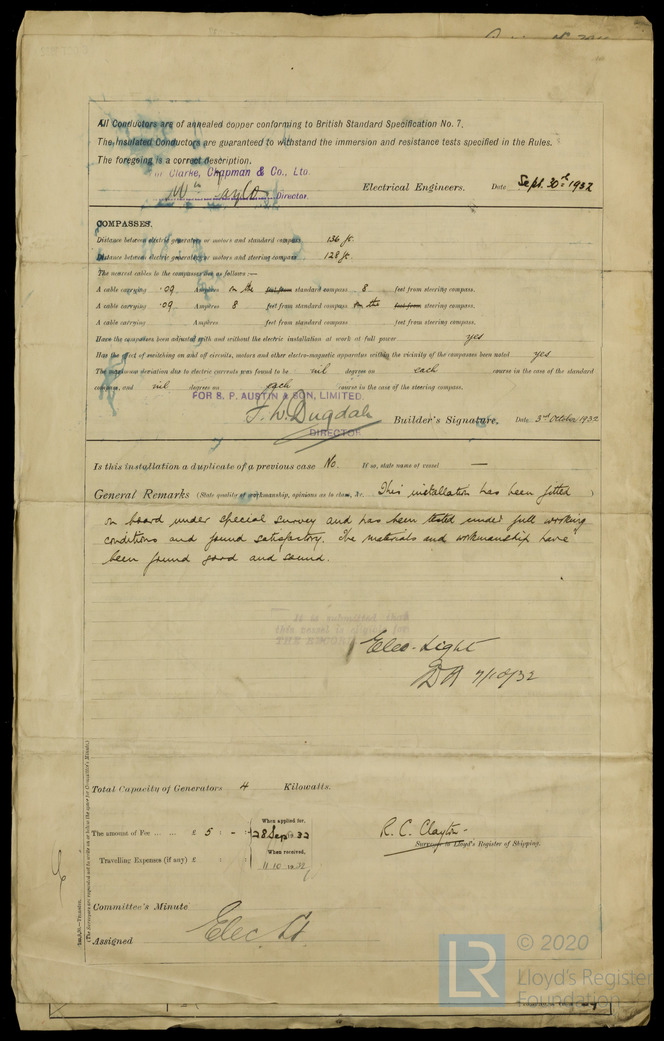 All Conductors are of annealed copper conforming to British Standard Specification No. 7.
The Insulated Conductors are guaranteed to withstand the immersion and resistance tests specified in the Rules.
The foregoing is a correct description.
or Clarke, Chapman & Co., Ltd.
Wm Director. Electrical Engineers. Date Sept. 30th 1932
COMPASSES.
Distance between electric generators or motors and standard compass 136 ft.
Distance between electric generators or motors and steering compass 128 ft.
The nearest cables to the compasses are as follows:—
A cable carrying .09 Amperes on the feet from standard compass 8 feet from steering compass.
A cable carrying .09 Amperes 8 feet from standard compass on the feet from steering compass.
A cable carrying Amperes feet from standard compass feet from steering compass.
Have the compasses been adjusted with and without the electric installation at work at full power yes
Has the effect of switching on and off circuits, motors and other electro-magnetic apparatus within the vicinity of the compasses been noted yes
The maximum deviation due to electric currents was found to be nil degrees on each course in the case of the standard
compass, and nil degrees on each course in the case of the steering compass.
FOR S. P. AUSTIN & SON, LIMITED.
F. W. Dugdale Builder's Signature. Date 3rd October 1932
DIRECTOR
Is this installation a duplicate of a previous case No. If so, state name of vessel —
General Remarks (State quality of workmanship, opinions as to class, &c. This installation has been fitted )
on board under special survey and has been tested under full working
conditions and found satisfactory. The materials and workmanship have
been found good and sound.
THE RECORD
Elec. Light
7/10/32
Total Capacity of Generators 4 Kilowatts.
The amount of Fee ... ... £ 5 : - :
When applied for,
28 Sep 1932
Travelling Expenses (if any) £ : :
When received,
11.10.1932
R. C. Clayton
Surveyor to Lloyd's Register of Shipping.
Committee's Minute
Assigned Elec. Lt.
(The Surveyors are requested not to write on or below the space for Committee's Minute.)
LR
© 2020
Lloyd's Register
Foundation